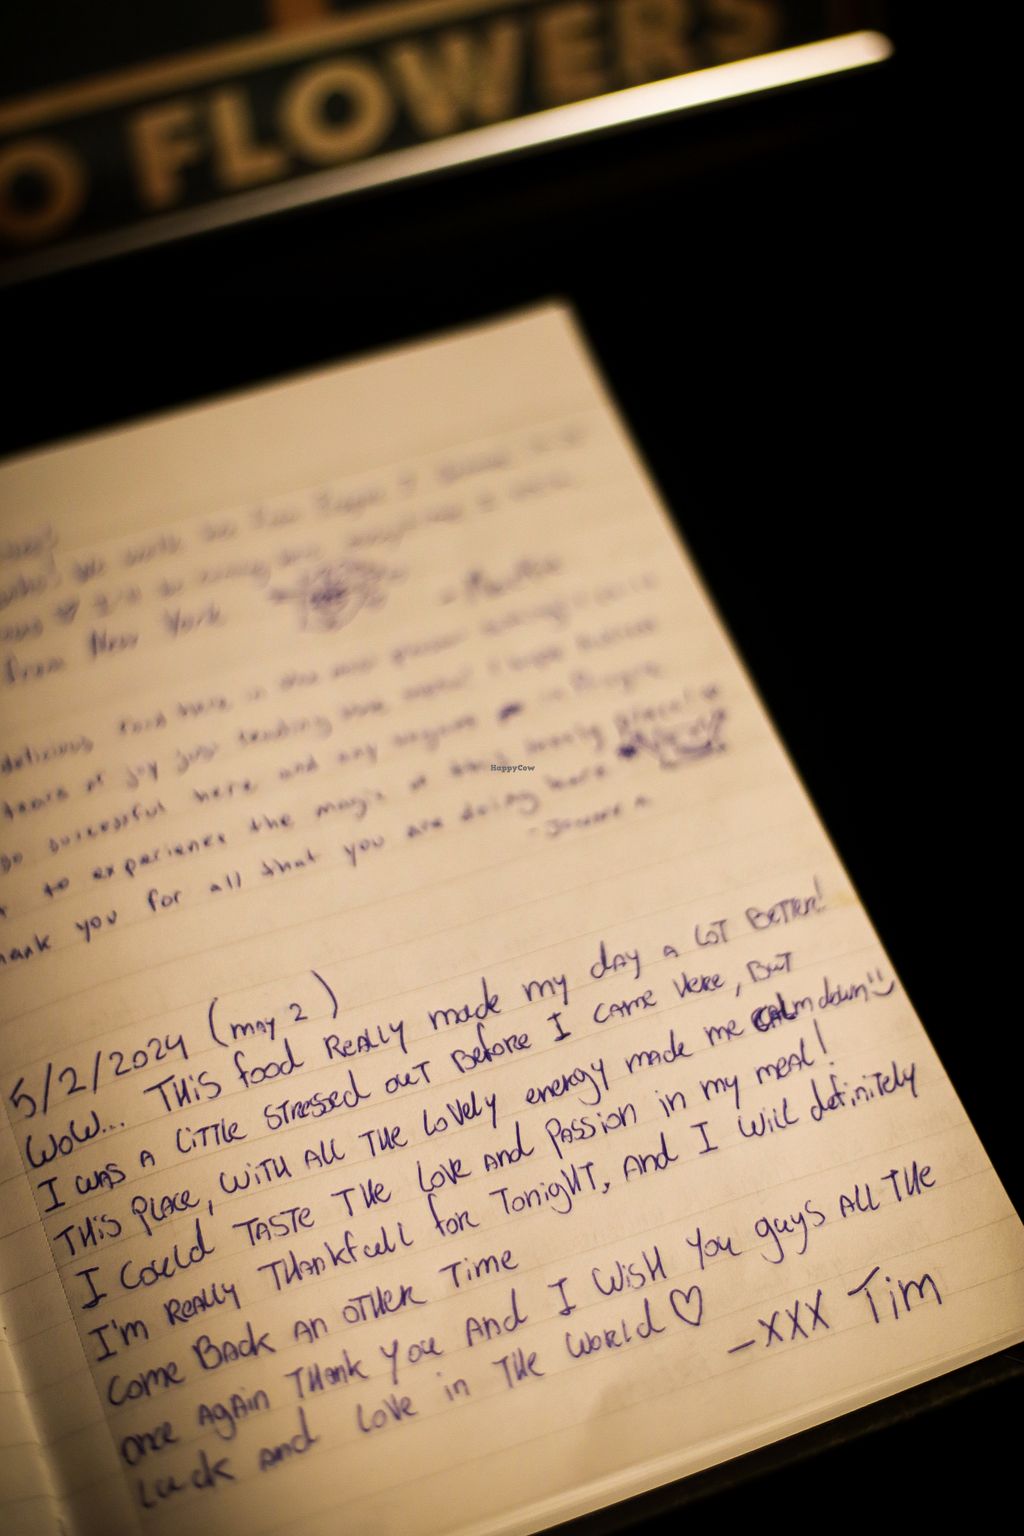 O FLOWERS
from New York
delicious food here is the
tears of joy just reading the menu! I hope
so successful here and any in Prague
to experience the magic of this lovely place!
thank you for all that you are doing here
HappyCow
5/2/2024 (may 2)
WOW... THis food REALLY made my dAy A LOT BETTER!
I was A LiTTLE STRESSED OUT BEFORE I CAME HERE, BUT
THis PLACE, WiTH ALL THE LOVELY energy made me CALm down
I COULD TASTE THE LOVE AND PASSION in my meAL!
I'm REALLY THANKfull for TonigHT, AND I WiLL definitely
COME BACK AN OTHER TimE
once AgAin THANK YOU AND I WiSH YOU guys ALL THE
Luck And Love in THE WORLD ♡
-XXX Tim